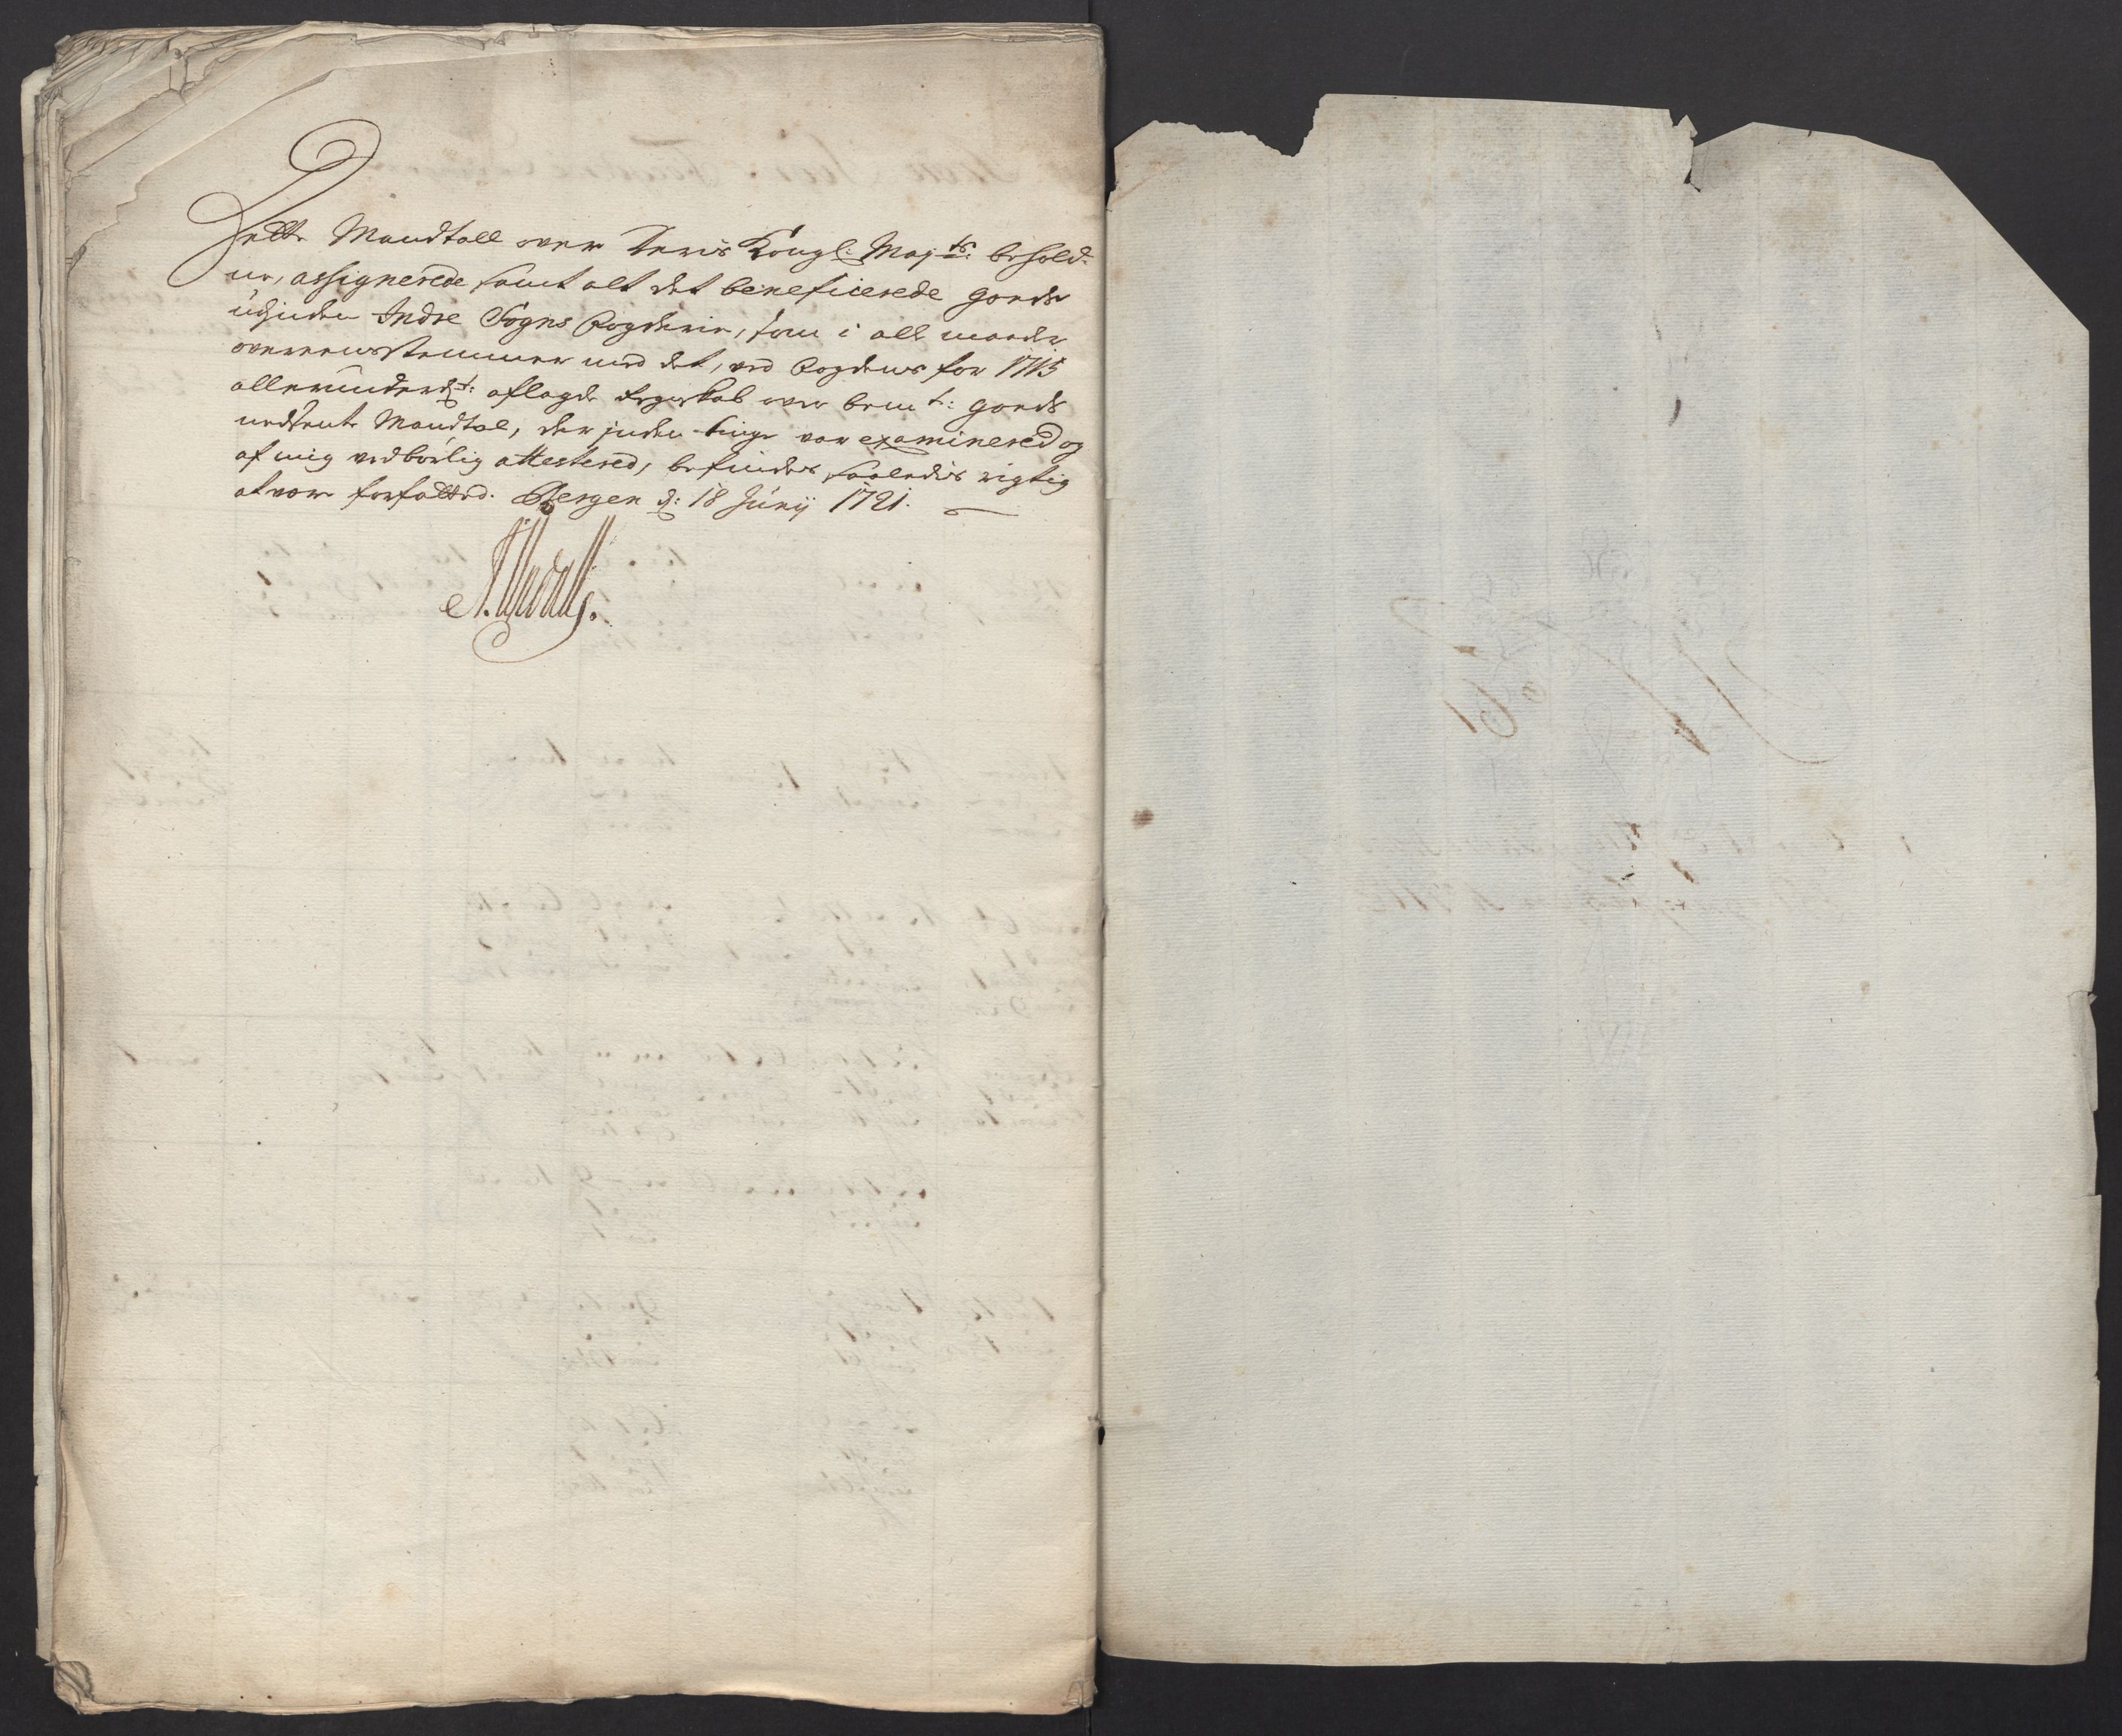 Dette Mandtall over Deris Kongl: Maj:ts behold-
ne, assignerede samt alt det beneficerede goeds
udj inden Indre Sogns Fogderie, som i alle maader
overeensstemmer med det, ved Fogdens for 1715
allerunderd:t: aflagde Regnskab over bem:t: goeds
Mandtal, der inden tinge var examinered og
af mig vedbørlig attestered, befindes saaledis rigtig
at være forfatted. Bergen d: 18 Junij 1721.